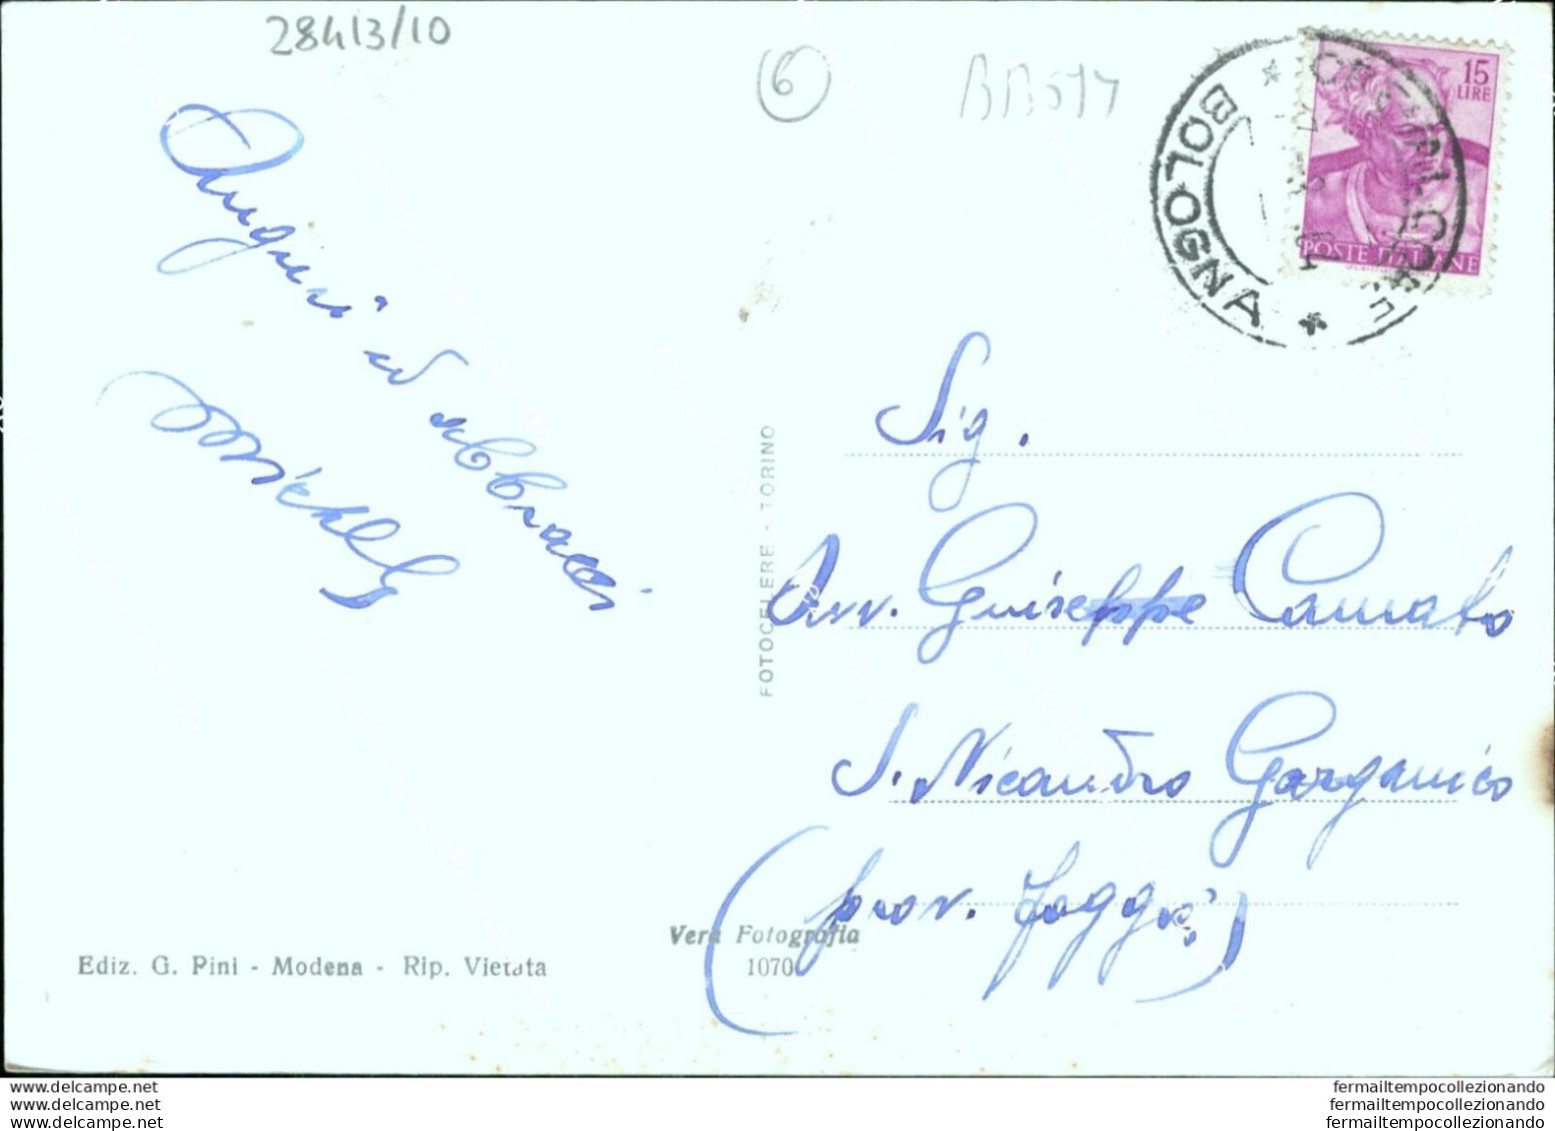 28413/10
6
BB594
15
LIRE
POSTE ITALIANE
BOLOGNA
Auguri ed abbracci
Sig.
Avv. Guiseppe Camato
S. Nicandro Garganico
(prov. Foggia)
FOTOCELERE - TORINO
Vera Fotografia
1070
Ediz. G. Pini - Modena - Rip. Vietata
delcampe.net
delcampe.net
delcampe.net
fermailtempocollezionando
fermailtempocollezionando
fermailtempocollezionando